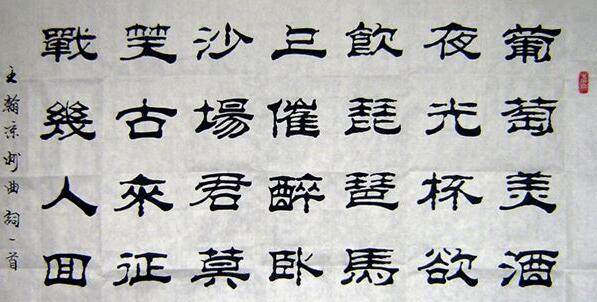 葡萄美酒
夜光杯欲
飲琵琶馬
上催醉卧
沙場君莫
笑古來征
戰幾人回
王翰凉州曲詞一首